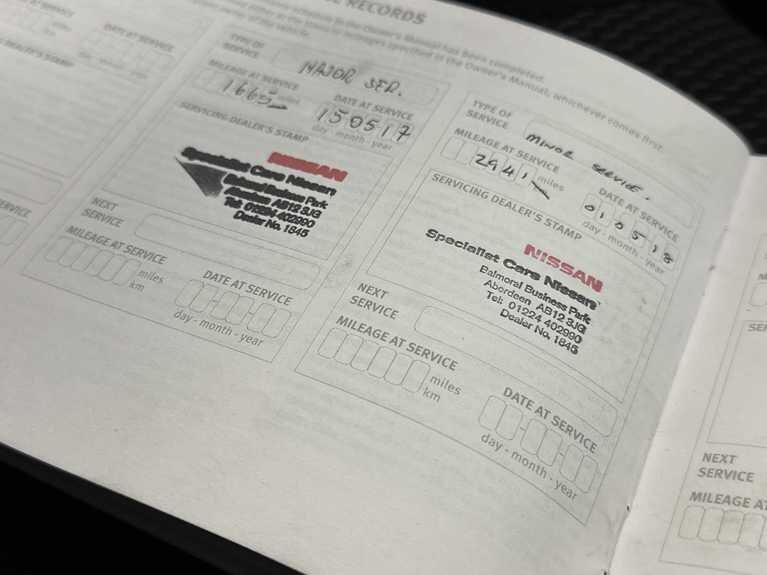 RECORDS
schedule in the Owner's Manual has been completed.
either at the hours or mileages specified in the Owner's Manual, whichever comes first.
of the vehicle.
DATE AT SERVICE
DEALER'S STAMP
TYPE OF
SERVICE
MAJOR SER.
MILEAGE AT SERVICE
1665 miles
DATE AT SERVICE
150517
day - month - year
SERVICING DEALER'S STAMP
NISSAN
Specialist Cars Nissan
Balmoral Business Park
Aberdeen AB12 3JG
Tel: 01224 402990
Dealer No. 1845
NEXT
SERVICE
MILEAGE AT SERVICE
miles
km
DATE AT SERVICE
day - month - year
TYPE OF
SERVICE
MINOR SERVICE.
MILEAGE AT SERVICE
2941 miles
DATE AT SERVICE
010518
day - month - year
SERVICING DEALER'S STAMP
NISSAN
Specialist Cars Nissan
Balmoral Business Park
Aberdeen AB12 3JG
Tel: 01224 402990
Dealer No. 1845
NEXT
SERVICE
MILEAGE AT SERVICE
miles
km
DATE AT SERVICE
day - month - year
NEXT
SERVICE
MILEAGE AT